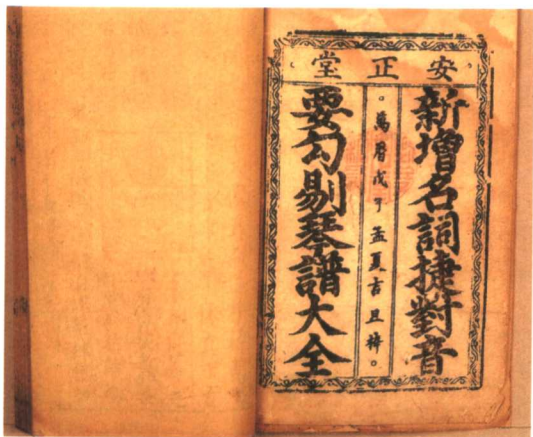 安正堂
新增名詞捷對音
。萬曆戊子孟夏吉旦梓。
要勾剔琴譜大全